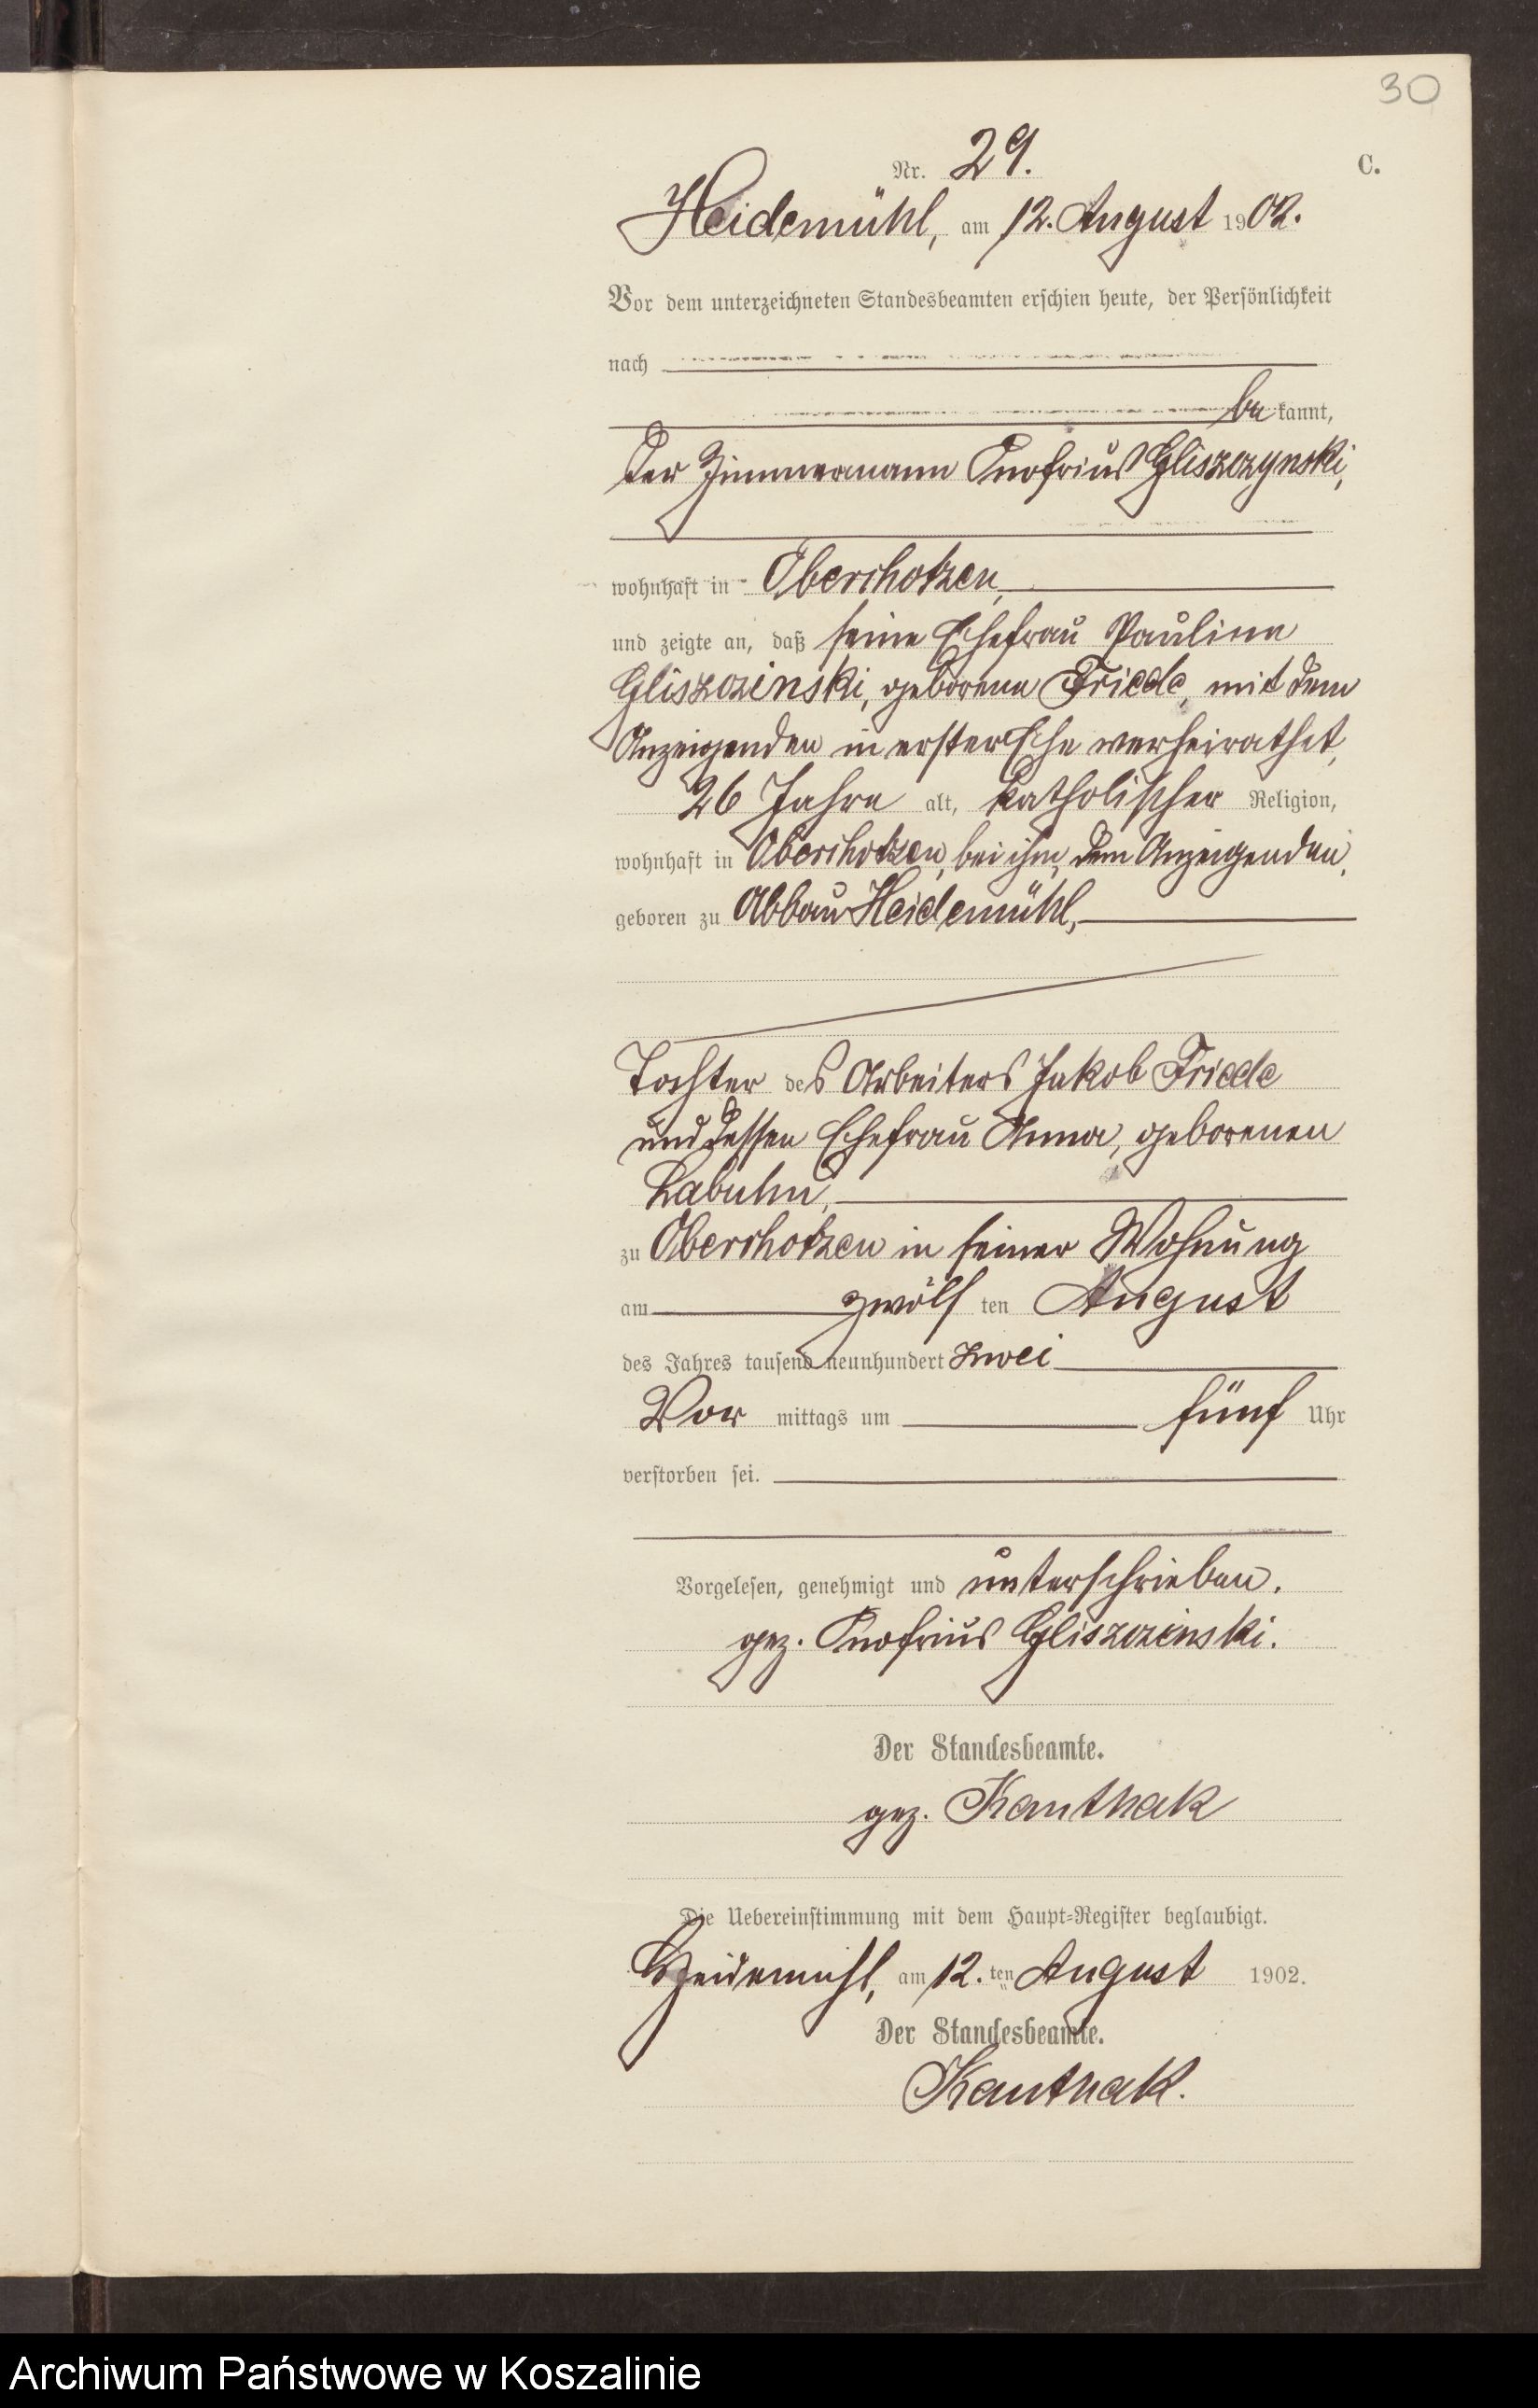 30
Nr. 29.
C.
Heidemühl, am 12. August 1902.
Vor dem unterzeichneten Standesbeamten erschien heute, der Persönlichkeit
nach
be kannt,
der Zimmermann Onofrius Gliszczynski,
wohnhaft in Oberchotzen,
und zeigte an, daß seine Ehefrau Pauline
Gliszczinski, geborene Friede, mit dem
Anzeigenden in erster Ehe verheirathet,
26 Jahre alt, katholischer Religion,
wohnhaft in Oberchotzen, bei ihm, dem Anzeigenden,
geboren zu Abbau Heidemühl,
Tochter des Arbeiters Jakob Friede
und dessen Ehefrau Anna, geborenen
Labuhn,
zu Oberchotzen in seiner Wohnung
am zwölf ten August
des Jahres tausend neunhundert zwei
Vor mittags um fünf Uhr
verstorben sei.
Vorgelesen, genehmigt und unterschrieben.
gez. Onofrius Gliszczinski.
Der Standesbeamte.
gez. Kanthak
Die Uebereinstimmung mit dem Haupt-Register beglaubigt.
Heidemühl, am 12. ten August 1902.
Der Standesbeamte.
Kanthak.
Archiwum Państwowe w Koszalinie